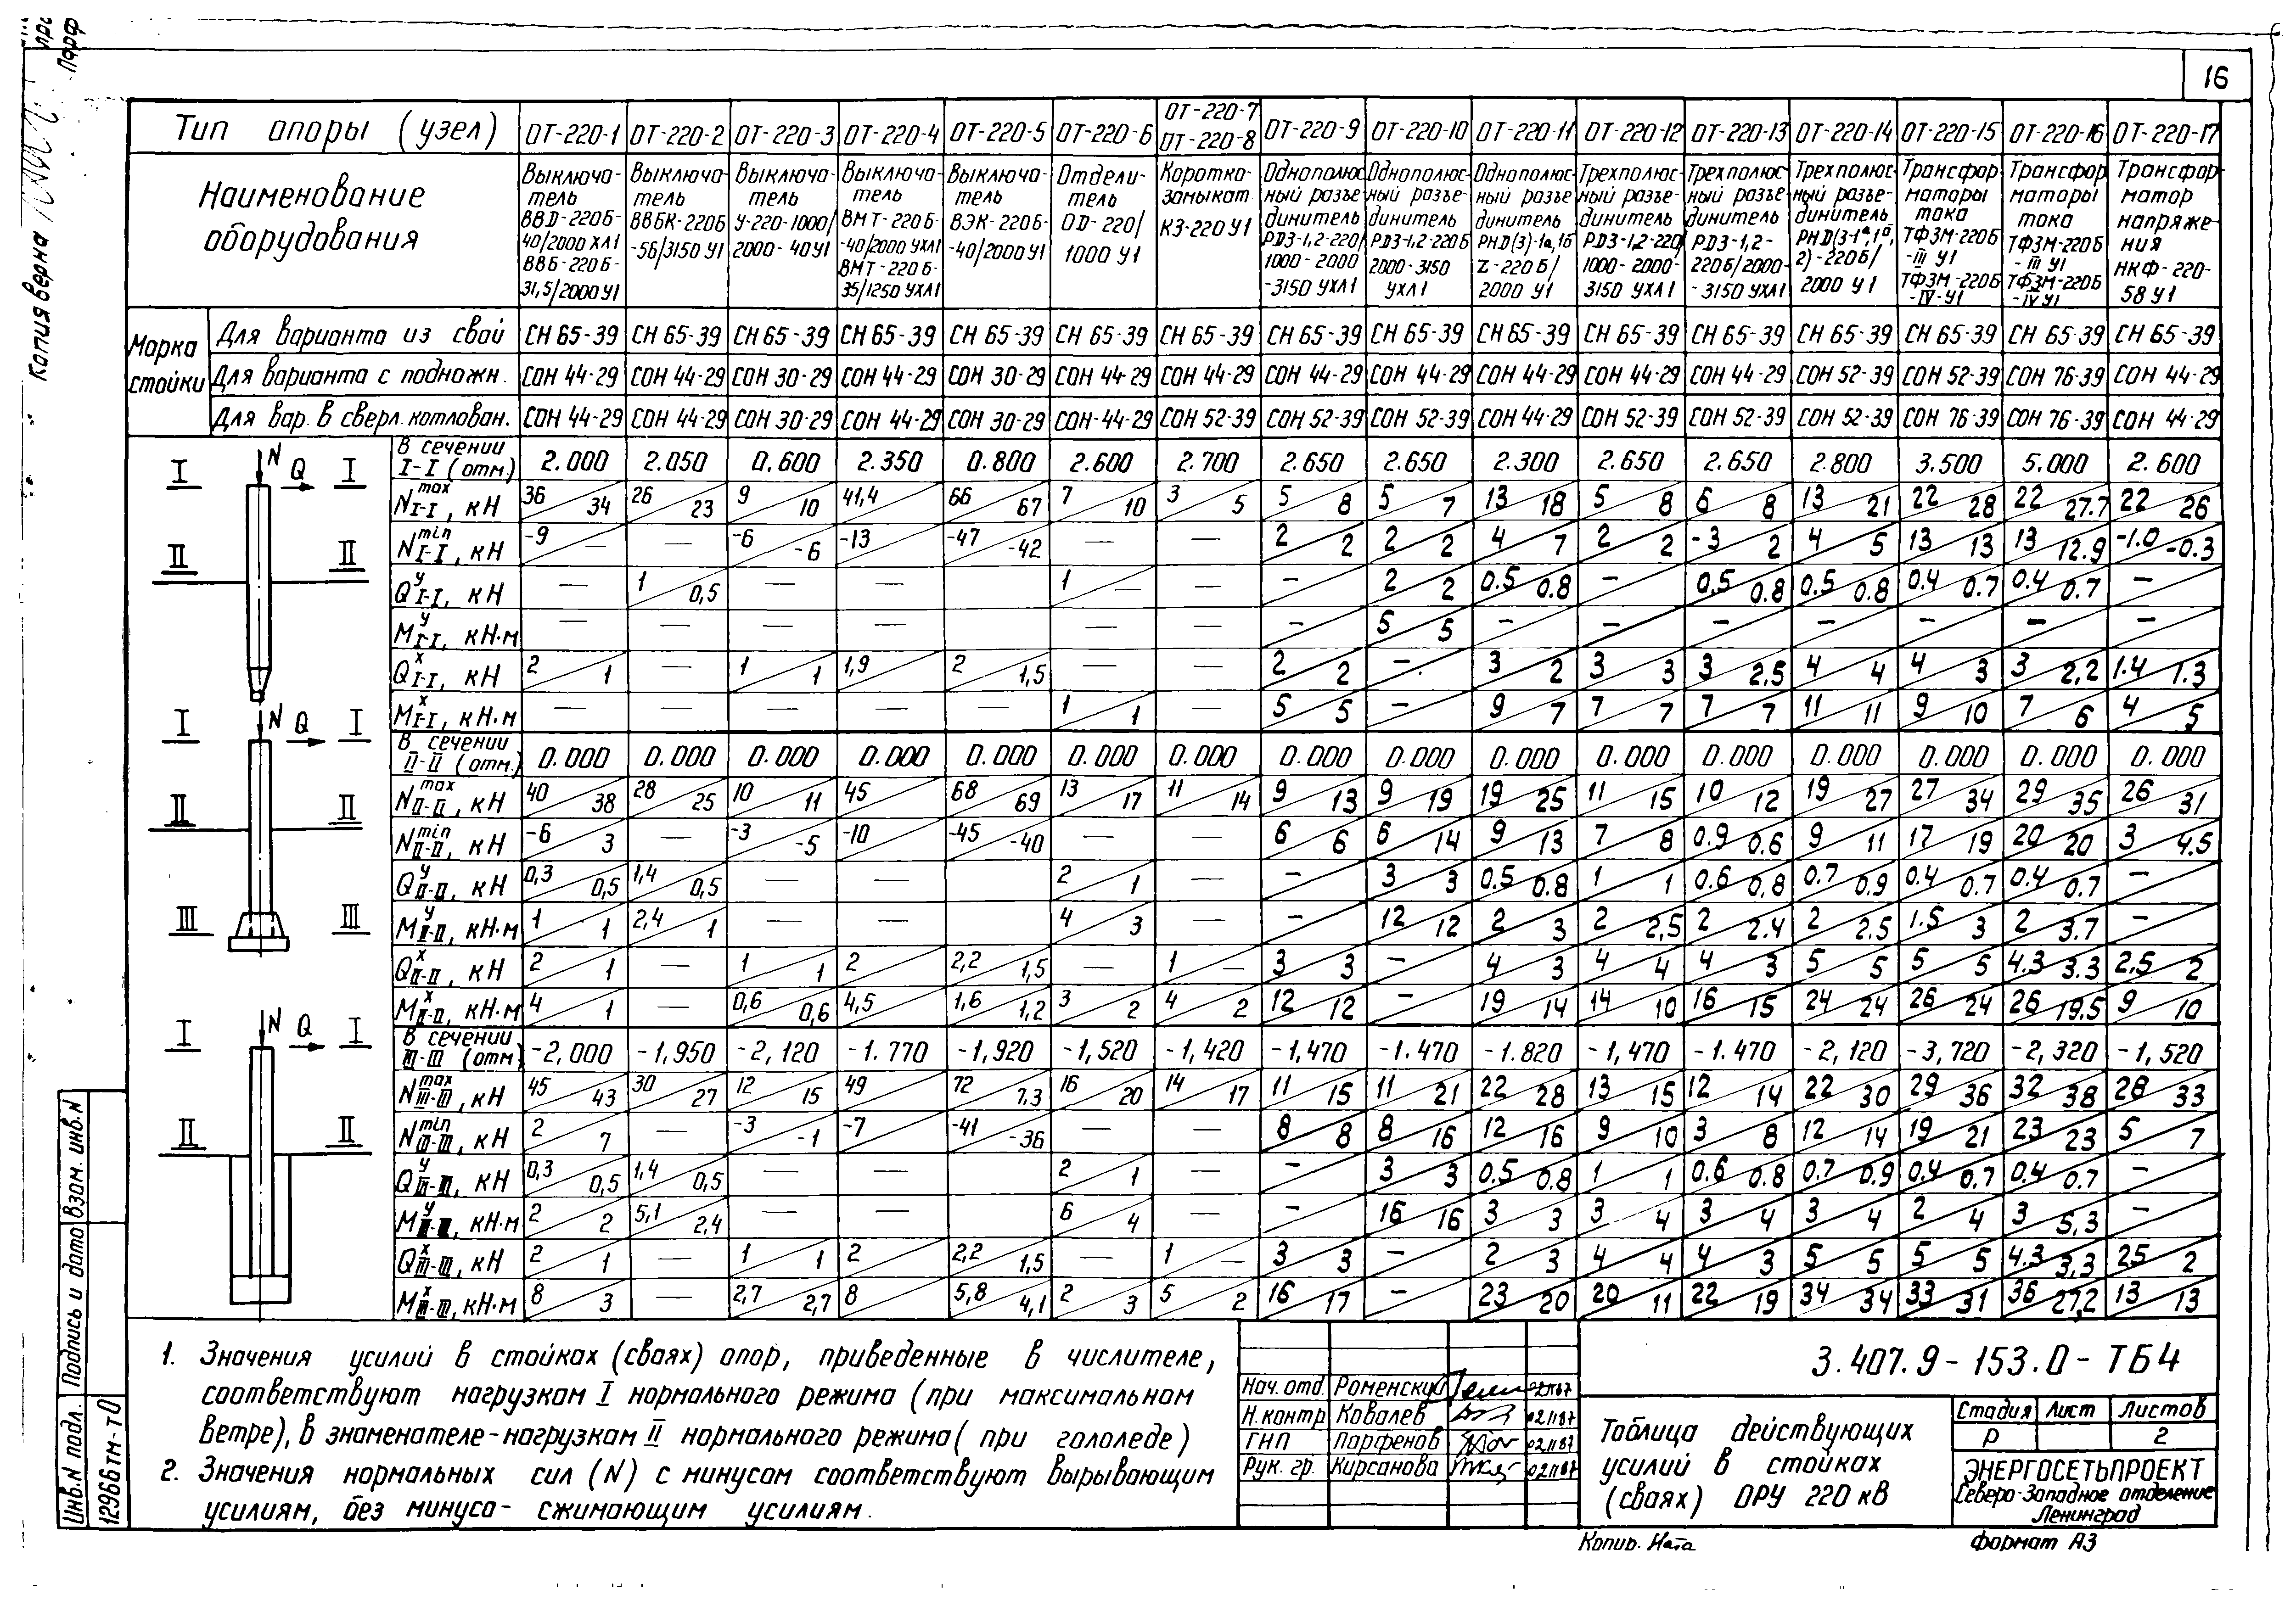 16
Копия верна
Тип опоры (узел) ОТ-220-1 ОТ-220-2 ОТ-220-3 ОТ-220-4 ОТ-220-5 ОТ-220-6 ОТ-220-7 ОТ-220-8 ОТ-220-9 ОТ-220-10 ОТ-220-11 ОТ-220-12 ОТ-220-13 ОТ-220-14 ОТ-220-15 ОТ-220-16 ОТ-220-17
Наименование оборудования
Выключатель ВВД-220Б-40/2000 ХЛ1 ВВБ-220Б-31,5/2000 У1
Выключатель ВВБК-220Б-56/3150 У1
Выключатель У-220-1000/2000-40У1
Выключатель ВМТ-220Б-40/2000 УХЛ1 ВМТ-220Б-35/1250 УХЛ1
Выключатель ВЭК-220Б-40/2000У1
Отделитель ОД-220/1000 У1
Короткозамыкат. КЗ-220 У1
Однополюсный разъединитель РДЗ-1,2-220/1000-2000-3150 УХЛ1
Однополюсный разъединитель РДЗ-1,2-220Б 2000-3150 УХЛ1
Однополюсный разъединитель РНД(З)-1а,1б Z-220Б/2000 У1
Трехполюсный разъединитель РДЗ-1,2-220/1000-2000-3150 УХЛ1
Трехполюсный разъединитель РДЗ-1,2-220Б/2000-3150 УХЛ1
Трехполюсный разъединитель РНД(З-1а,1б,2)-220Б/2000 У1
Трансформаторы тока ТФЗМ-220Б-III У1 ТФЗМ-220Б-IV-У1
Трансформаторы тока ТФЗМ-220Б-III У1 ТФЗМ-220Б-IV У1
Трансформатор напряжения НКФ-220-58 У1
Марка стойки
Для варианта из свай СН 65-39 СН 65-39 СН 65-39 СН 65-39 СН 65-39 СН 65-39 СН 65-39 СН 65-39 СН 65-39 СН 65-39 СН 65-39 СН 65-39 СН 65-39 СН 65-39 СН 65-39 СН 65-39
Для варианта с подножн. СОН 44-29 СОН 44-29 СОН 30-29 СОН 44-29 СОН 30-29 СОН 44-29 СОН 44-29 СОН 44-29 СОН 44-29 СОН 44-29 СОН 44-29 СОН 44-29 СОН 52-39 СОН 52-39 СОН 76-39 СОН 44-29
Для вар. в сверл. котлован. СОН 44-29 СОН 44-29 СОН 30-29 СОН 44-29 СОН 30-29 СОН-44-29 СОН 52-39 СОН 52-39 СОН 52-39 СОН 44-29 СОН 52-39 СОН 52-39 СОН 52-39 СОН 76-39 СОН 76-39 СОН 44-29
В сечении I-I (отм.) 2.000 2.050 0.600 2.350 0.800 2.600 2.700 2.650 2.650 2.300 2.650 2.650 2.800 3.500 5.000 2.600
N max I-I, кН 36/34 26/23 9/10 41,4/ 66/67 7/10 3/5 5/8 5/7 13/18 5/8 6/8 13/21 22/28 22/27.7 22/26
N min I-I, кН -9/— — -6/-6 -13/ -47/-42 — — 2/2 2/2 4/7 2/2 -3/2 4/5 13/13 13/12.9 -1.0/-0.3
Q y I-I, кН — 1/0,5 — — 1/— — — 2/2 0.5/0.8 — 0.5/0.8 0.5/0.8 0.4/0.7 0.4/0.7 —
M y I-I, кН·м — — — — — — — 5/5 — — — — — — —
Q x I-I, кН 2/1 — 1/1 1,9/ 2/1,5 — — 2/2 — 3/2 3/3 3/2,5 4/4 4/3 3/2,2 1.4/1.3
M x I-I, кН·м — — — — — 1/1 — 5/5 — 9/7 7/7 7/7 11/11 9/10 7/6 4/5
В сечении II-II (отм.) 0.000 0.000 0.000 0.000 0.000 0.000 0.000 0.000 0.000 0.000 0.000 0.000 0.000 0.000 0.000 0.000
N max II-II, кН 40/38 28/25 10/11 45/ 68/69 13/17 11/14 9/13 9/19 19/25 11/15 10/12 19/27 27/34 29/35 26/31
N min II-II, кН -6/3 — -3/-5 -10/ -45/-40 — — 6/6 6/14 9/13 7/8 0.9/0.6 9/11 17/19 20/20 3/4.5
Q y II-II, кН 0,3/0,5 1,4/0,5 — — 2/1 — — 3/3 0.5/0.8 1/1 0.6/0.8 0.7/0.9 0.4/0.7 0.4/0.7 —
M y II-II, кН·м 1/1 2,4/1 — — 4/3 — — 12/12 2/3 2/2,5 2/2.4 2/2.5 1.5/3 2/3.7 —
Q x II-II, кН 2/1 — 1/1 2/ 2,2/1,5 — 1/— 3/3 — 4/3 4/4 4/3 5/5 5/5 4.3/3.3 2.5/2
M x II-II, кН·м 4/1 — 0,6/0,6 4,5/ 1,6/1,2 3/2 4/2 12/12 — 19/14 14/10 16/15 24/24 26/24 26/19.5 9/10
В сечении III-III (отм) -2,000 -1,950 -2,120 -1.770 -1,920 -1,520 -1,420 -1,470 -1.470 -1.820 -1,470 -1.470 -2,120 -3,720 -2,320 -1,520
N max III-III, кН 45/43 30/27 12/15 49/ 72/7.3 16/20 14/17 11/15 11/21 22/28 13/15 12/14 22/30 29/36 32/38 28/33
N min III-III, кН 2/7 — -3/-1 -7/ -41/-36 — — 8/8 8/16 12/16 9/10 3/8 12/14 19/21 23/23 5/7
Q y III-III, кН 0,3/0,5 1,4/0,5 — — 2/1 — — 3/3 0.5/0.8 1/1 0.6/0.8 0.7/0.9 0.4/0.7 0.4/0.7 —
M y III-III, кН·м 2/2 5,1/2,4 — — 6/4 — — 16/16 3/3 3/4 3/4 3/4 2/4 3/5,3 —
Q x III-III, кН 2/1 — 1/1 2/ 2,2/1,5 — 1/— 3/3 — 2/3 4/4 4/3 5/5 5/5 4.3/3,3 25/2
M x III-III, кН·м 8/3 — 2,7/2,7 8/ 5,8/4,1 2/3 5/2 16/17 — 23/20 20/11 22/19 34/34 33/31 36/27,2 13/13
I N Q I
II II
I N Q I
II II
III III
I N Q I
II II
1. Значения усилий в стойках (сваях) опор, приведенные в числителе,
соответствуют нагрузкам I нормального режима (при максимальном
ветре), в знаменателе-нагрузкам II нормального режима (при гололеде)
2. Значения нормальных сил (N) с минусом соответствуют вырывающим
усилиям, без минуса- сжимающим усилиям.
Нач. отд. Роменский
Н.контр Ковалев 02.11.87
ГНП Парфенов 02.11.87
Рук. гр. Кирсанова 02.11.87
3.407.9-153.0-ТБ4
Таблица действующих
усилий в стойках
(сваях) ОРУ 220 кВ
Стадия Лист Листов
Р 2
ЭНЕРГОСЕТЬПРОЕКТ
Северо-Западное отделение
Ленинград
Копир. Ната
Формат А3
Инв.N подл. Подпись и дата Взам. инв.N
12966тм-т0